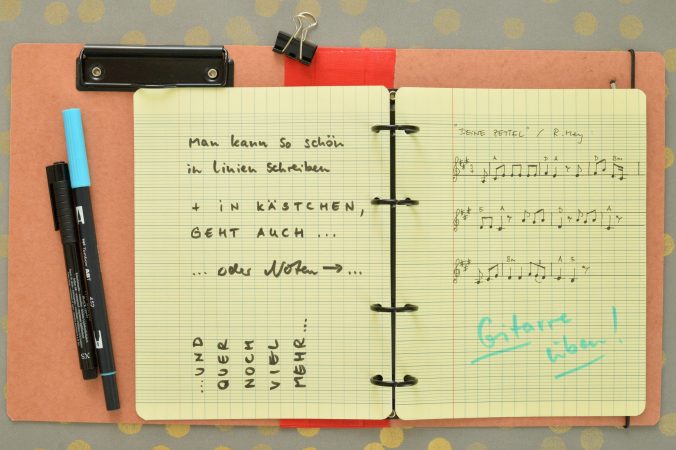 Man kann so schön
in Linien schreiben
+ IN KÄSTCHEN,
GEHT AUCH ...
... oder Noten → ...
...UND
QUER
NOCH
VIEL
MEHR...
"DEINE ZETTEL" / R. Mey
A D A D Bm
E A D A
Bm A E
Gitarre
üben!
XS